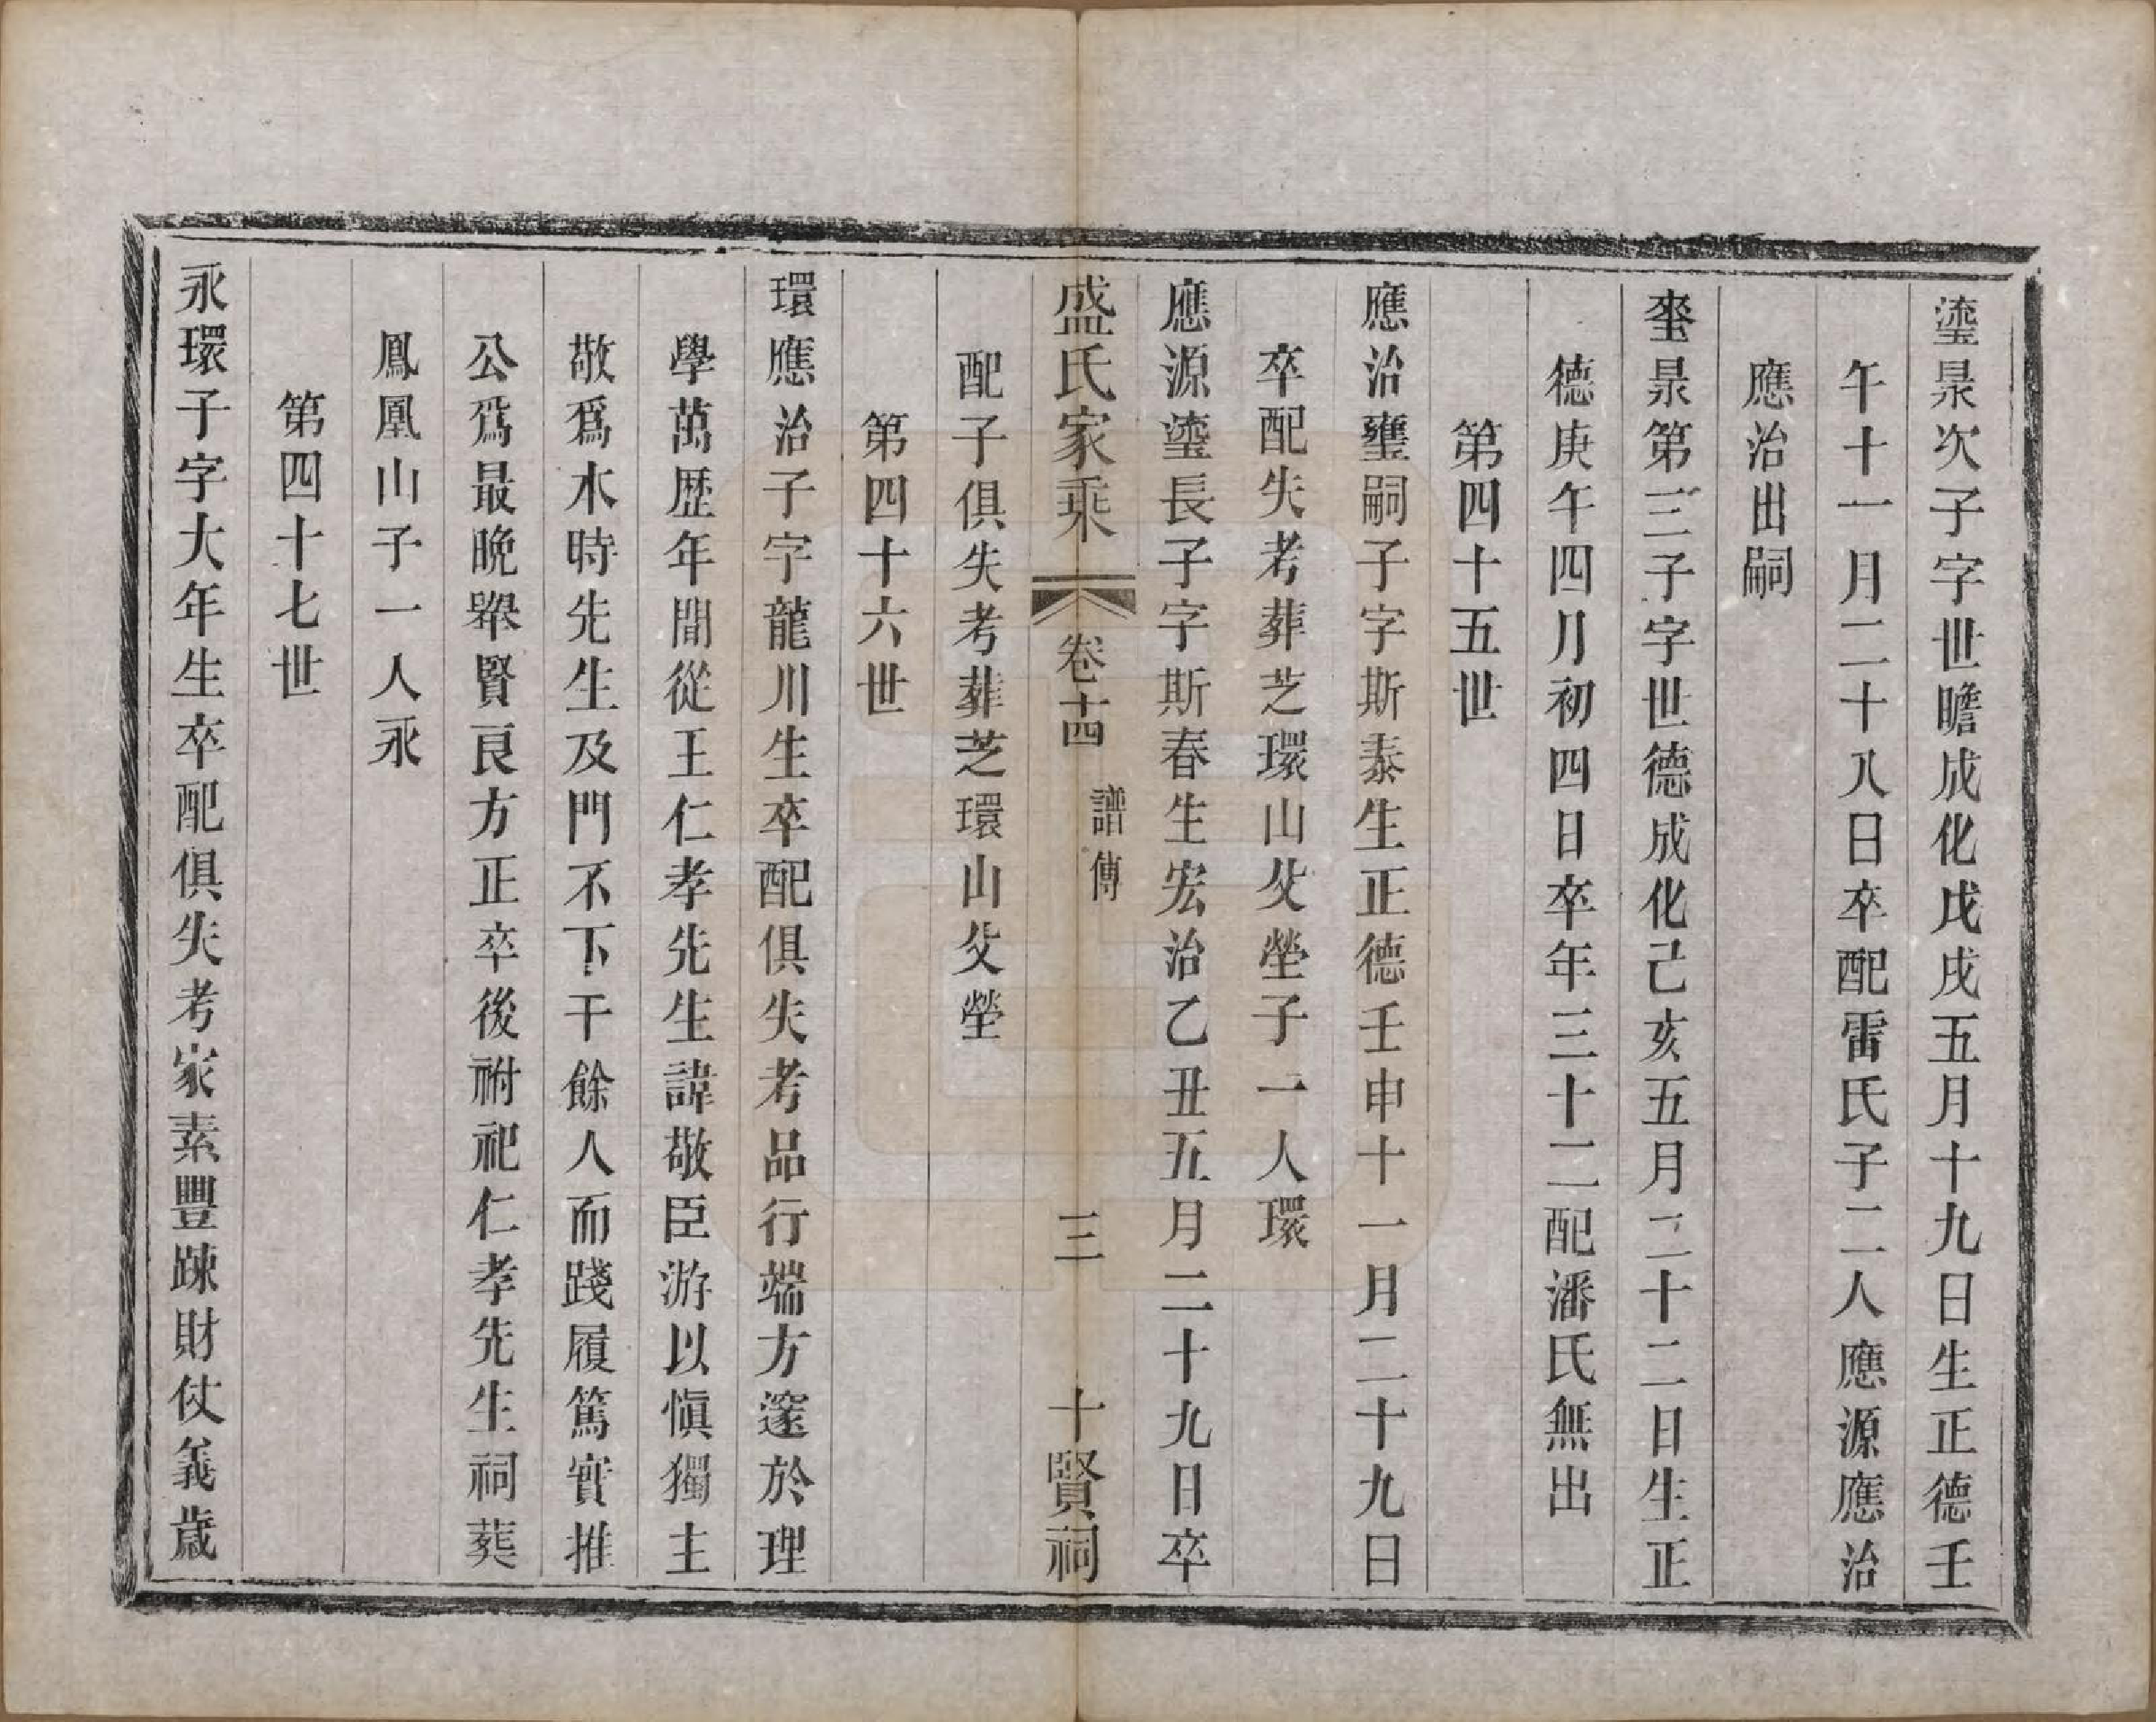 瀅杲次子字世瞻成化戊戌五月十九日生正德壬
午十一月二十八日卒配雷氏子二人應源應治
應治出嗣
杲第三子字世德成化己亥五月二十二日生正
德庚午四月初四日卒年三十二配潘氏無出
第四十五世
應治璽嗣子字斯泰生正德壬申十一月二十九日
卒配失考葬芝環山父塋子一人環
應源瀅長子字斯春生宏治乙丑五月二十九日卒
盛氏家乘 卷十四 譜傳 三 十賢祠
配子俱失考葬芝環山父塋
第四十六世
環應治子字龍川生卒配俱失考品行端方邃於理
學萬歷年間從王仁孝先生諱敬臣游以愼獨主
敬爲本時先生及門不下千餘人而踐履篤實推
公爲最晩舉賢良方正卒後祔祀仁孝先生祠葬
鳳凰山子一人永
第四十七世
永環子字大年生卒配俱失考家素豐踈財仗義歲